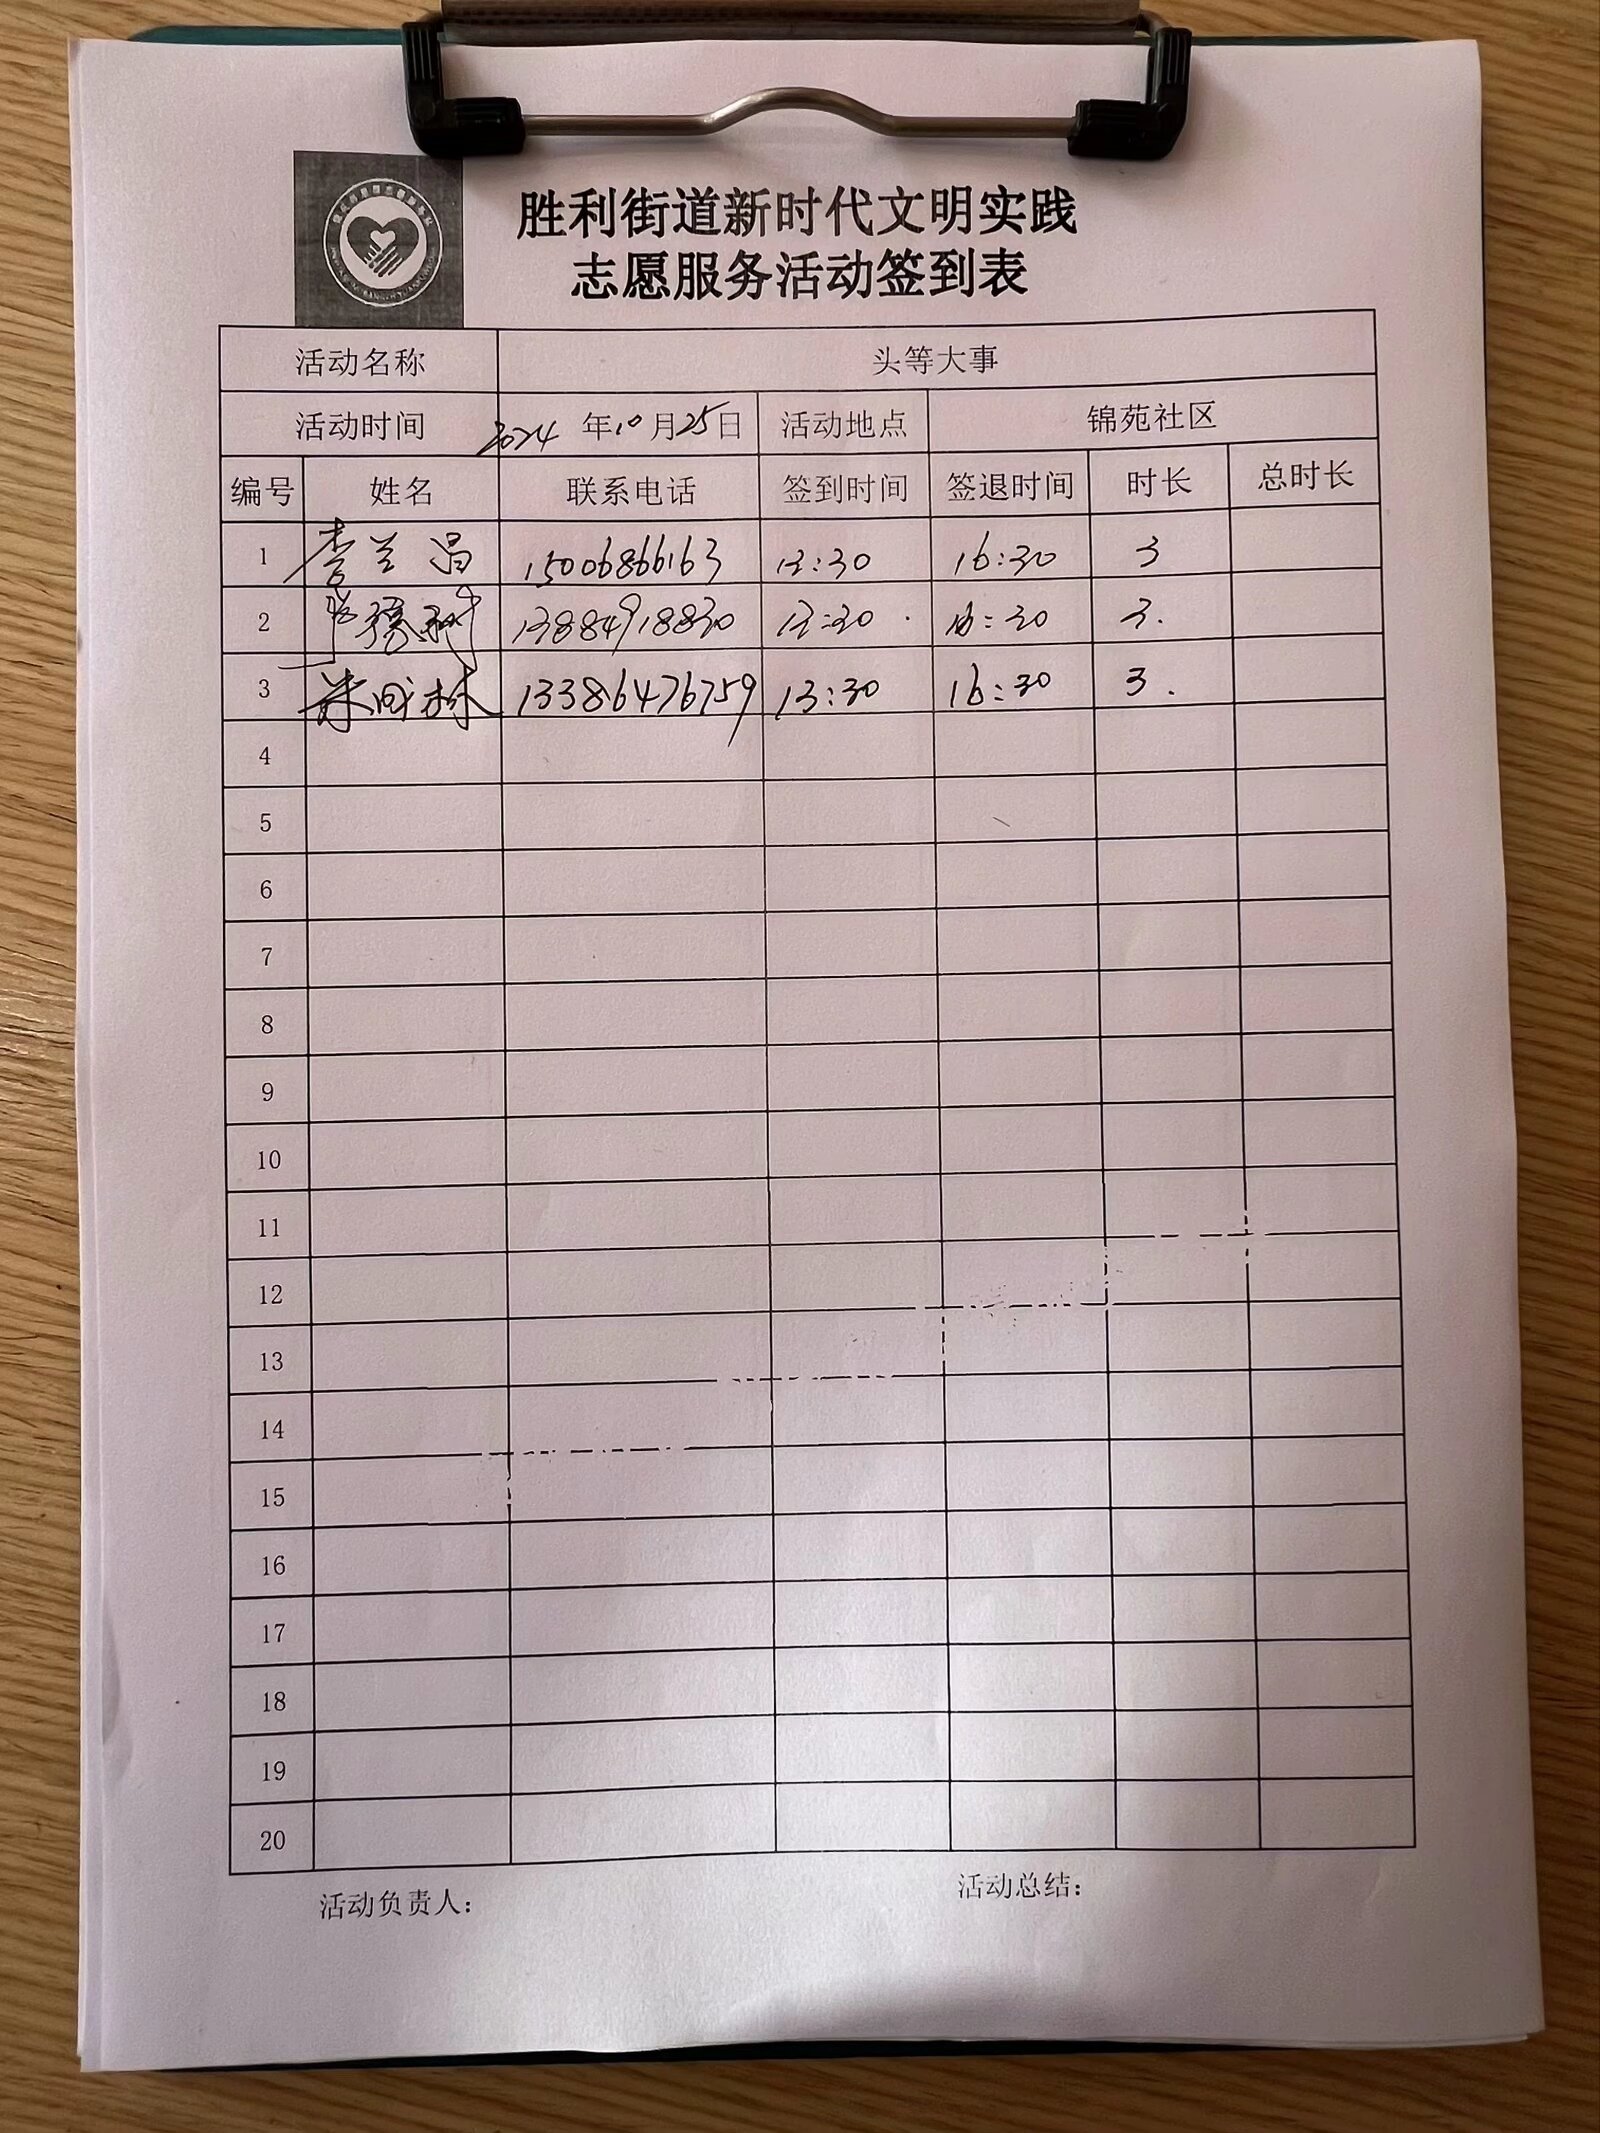 胜利街道新时代文明实践
志愿服务活动签到表
活动名称 头等大事
活动时间 2024 年10月25日 活动地点 锦苑社区
编号 姓名 联系电话 签到时间 签退时间 时长 总时长
1 李兰昌 15006866163 13:30 16:30 3
2 13884918830 13:30 16:30 3.
3 13386476759 13:30 16:30 3.
4
5
6
7
8
9
10
11
12
13
14
15
16
17
18
19
20
活动负责人: 活动总结: